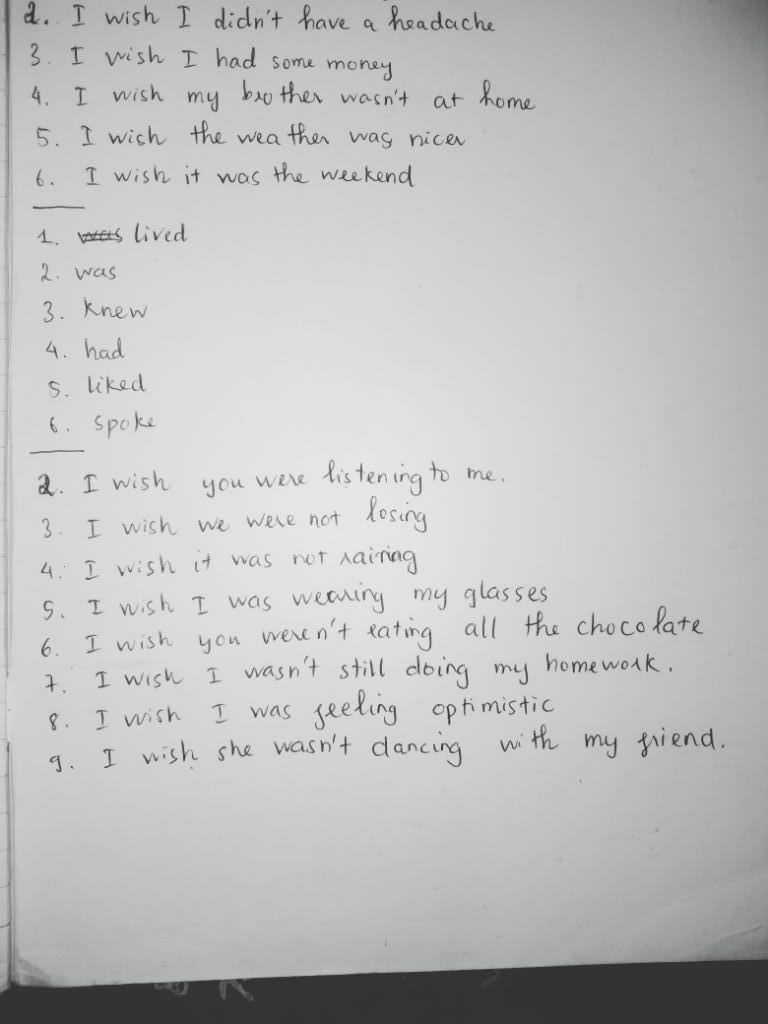 2. I wish I didn't have a headache
3. I wish I had some money
4. I wish my brother wasn't at home
5. I wish the weather was nicer
6. I wish it was the weekend
1. was lived
2. was
3. knew
4. had
5. liked
6. spoke
2. I wish you were listening to me.
3. I wish we were not losing
4. I wish it was not raining
5. I wish I was wearing my glasses
6. I wish you weren't eating all the chocolate
7. I wish I wasn't still doing my homework.
8. I wish I was feeling optimistic
9. I wish she wasn't dancing with my friend.